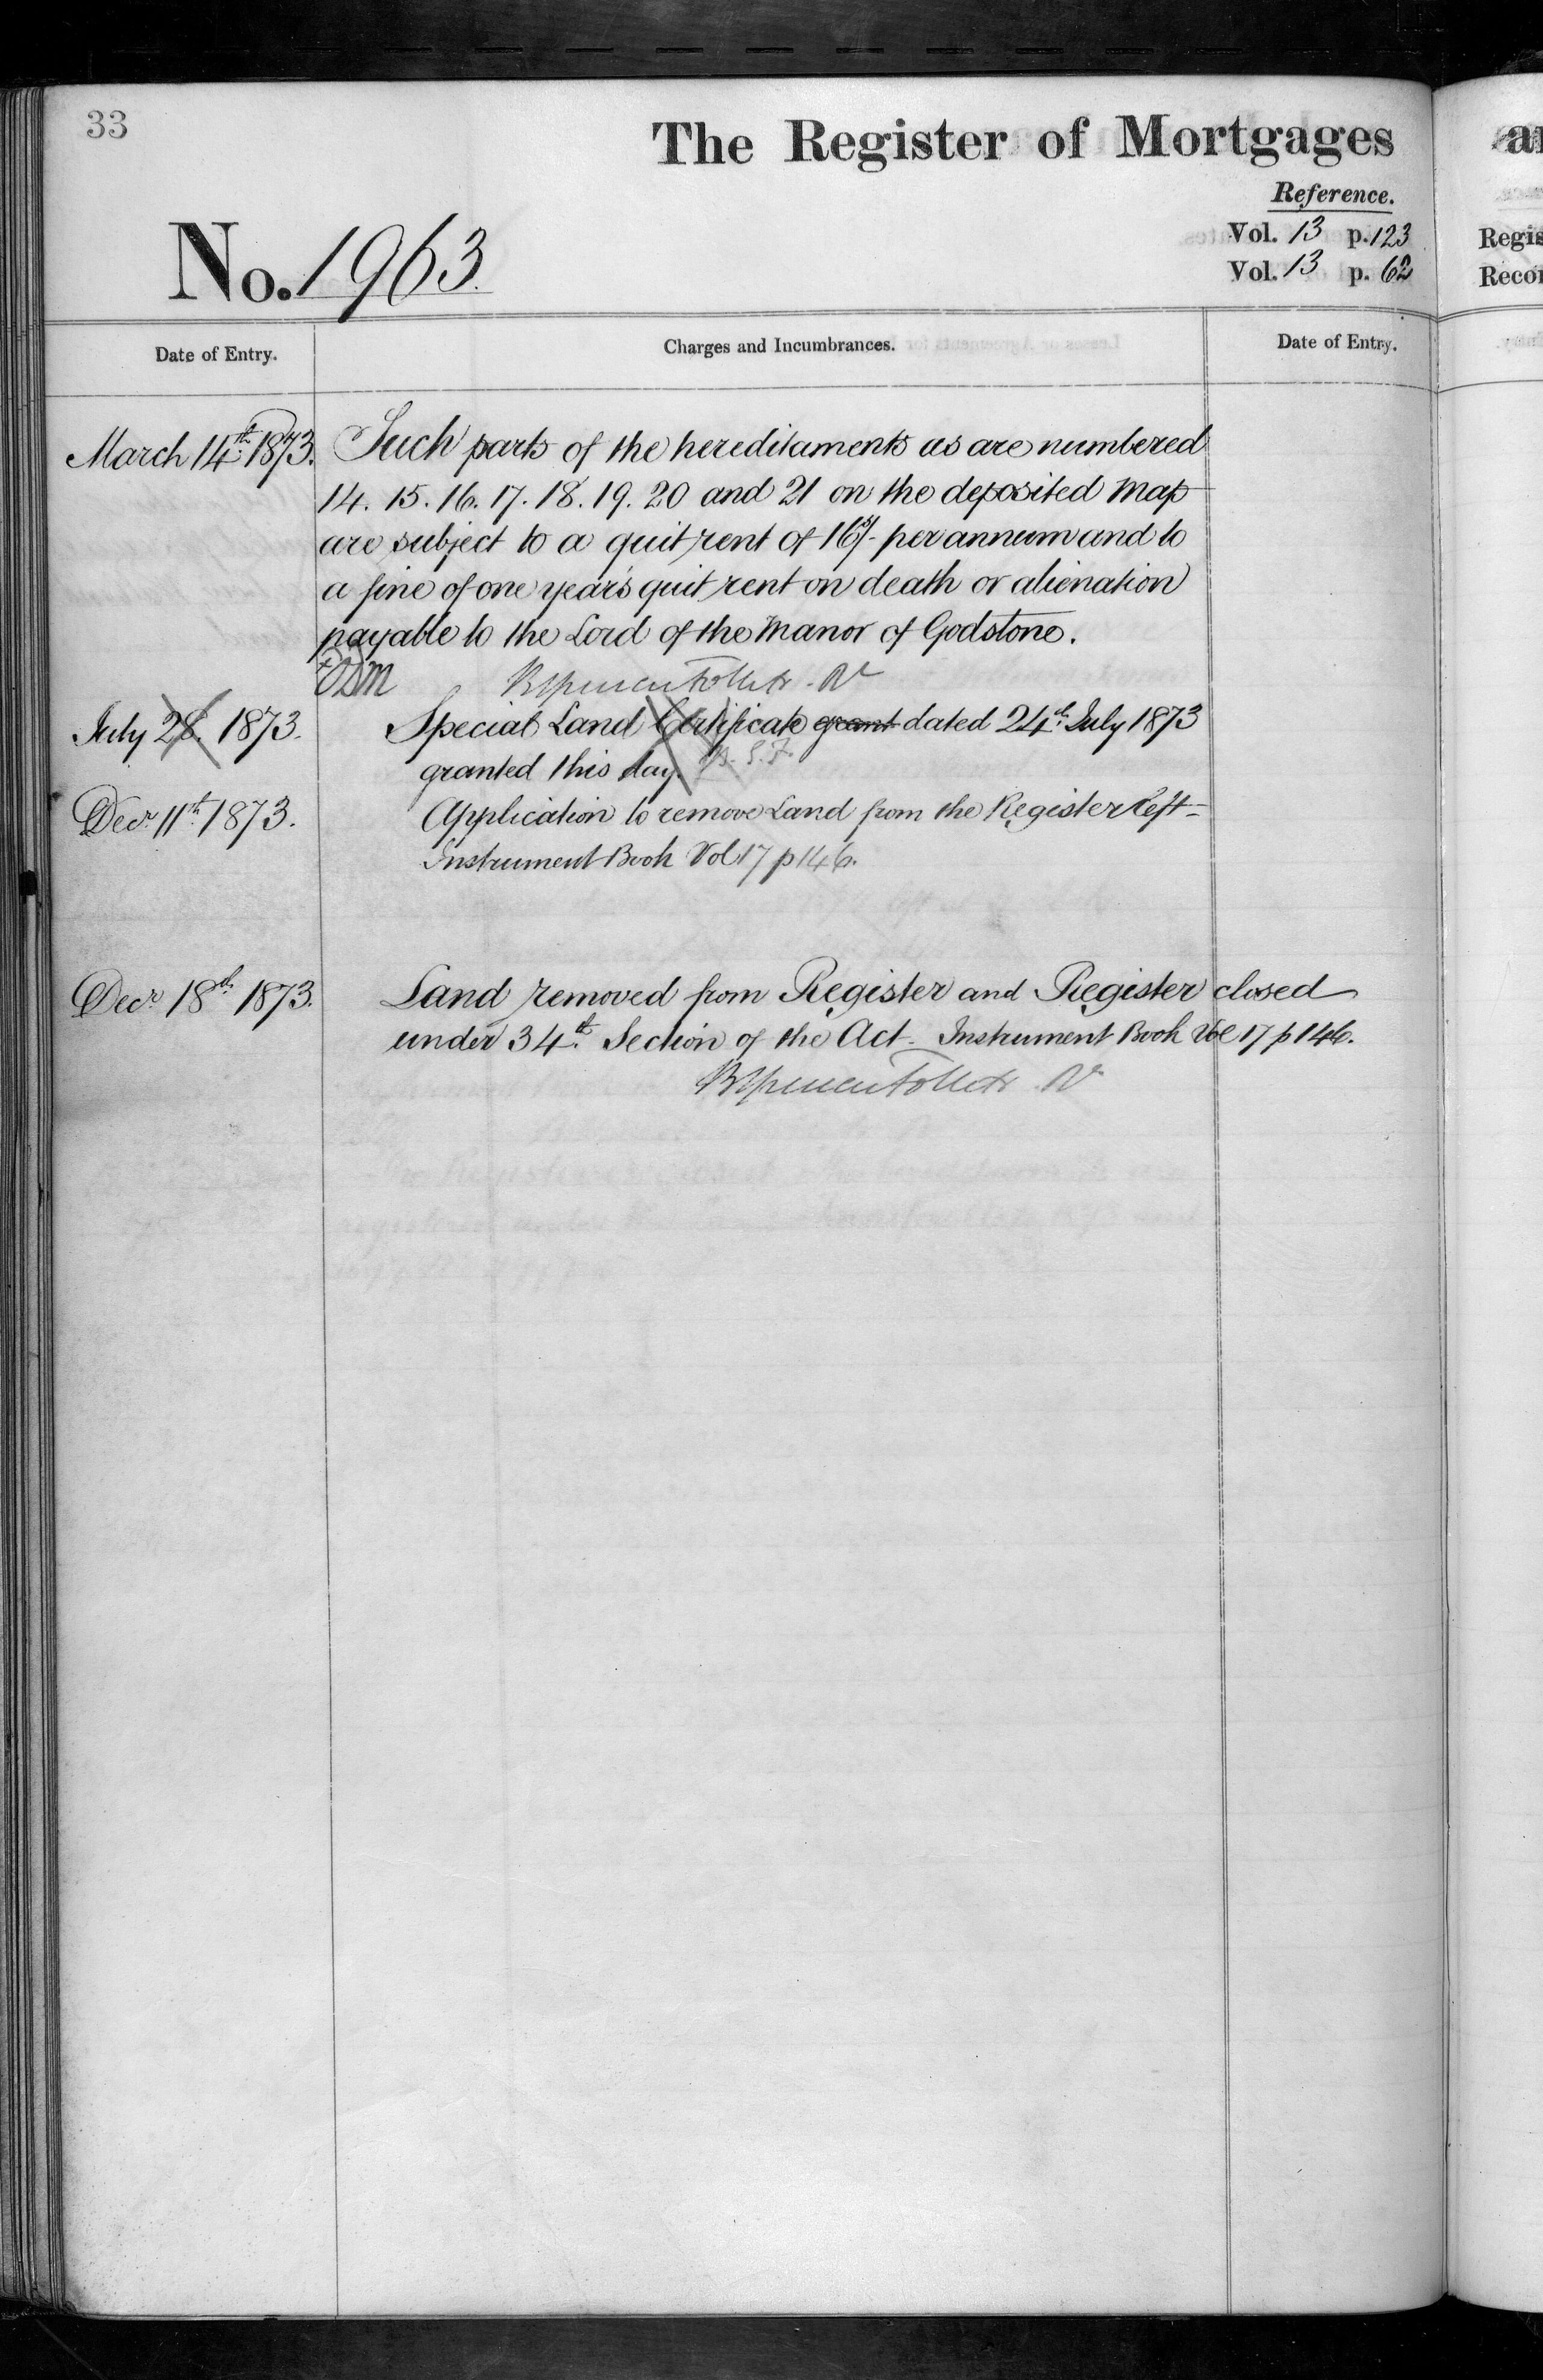 33
The Register of Mortgages
Reference.
Vol. 13 p. 123
Vol. 13 p. 62
No. 1963.
Regis
Recor
Date of Entry.
Charges and Incumbrances.
Date of Entry.
March 14th 1873.
Such parts of the hereditaments as are numbered
14. 15. 16. 17. 18. 19. 20 and 21 on the deposited Map
are subject to a quit rent of 16s/- per annum and to
a fine of one year's quit rent on death or alienation
payable to the Lord of the Manor of Godstone.
BSpencer Follett. Rr
July 28. 1873.
Special Land Certificate grant dated 24th July 1873
granted this day. B.S.F.
Decr 11th 1873.
Application to remove Land from the Register left -
Instrument Book Vol 17 p 146.
Decr 18th 1873.
Land removed from Register and Register closed
under 34th Section of the Act - Instrument Book Vol 17 p 146.
BSpencer Follett Rr